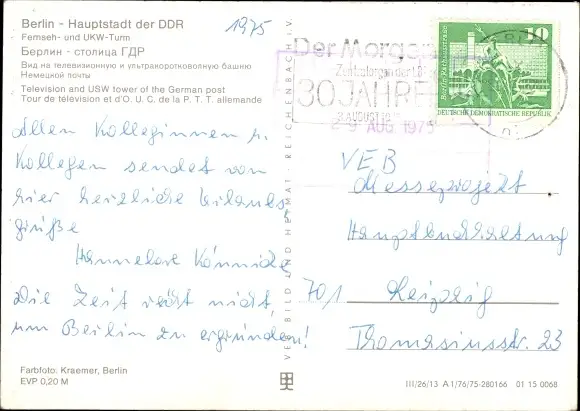 Berlin - Hauptstadt der DDR
Fernseh- und UKW-Turm
Берлин - столица ГДР
Вид на телевизионную и ультракоротковолную башню
Немецкой почты
Television and USW tower of the German post
Tour de télévision et d'O. U. C. de la P. T. T. allemande
1975
Allen Kolleginnen u.
Kollegen sendet von
hier herzliche Urlaubs
grüße
Hannelore
Die Zeit reicht nicht,
um Berlin zu ergründen!
Farbfoto: Kraemer, Berlin
EVP 0,20 M
VEB BILD UND HEIMAT REICHENBACH i. V.
Der Morgen
Zentralorgan der
30 JAHRE
AUGUST
2 9. AUG. 1975
10
Berlin, Rathausstraße
DEUTSCHE DEMOKRATISCHE REPUBLIK
VEB
Messeprojekt
Hauptbuchhaltung
701 Leipzig
Thomasiusstr. 23
III/26/13 A 1/76/75-280166 01 15 0068